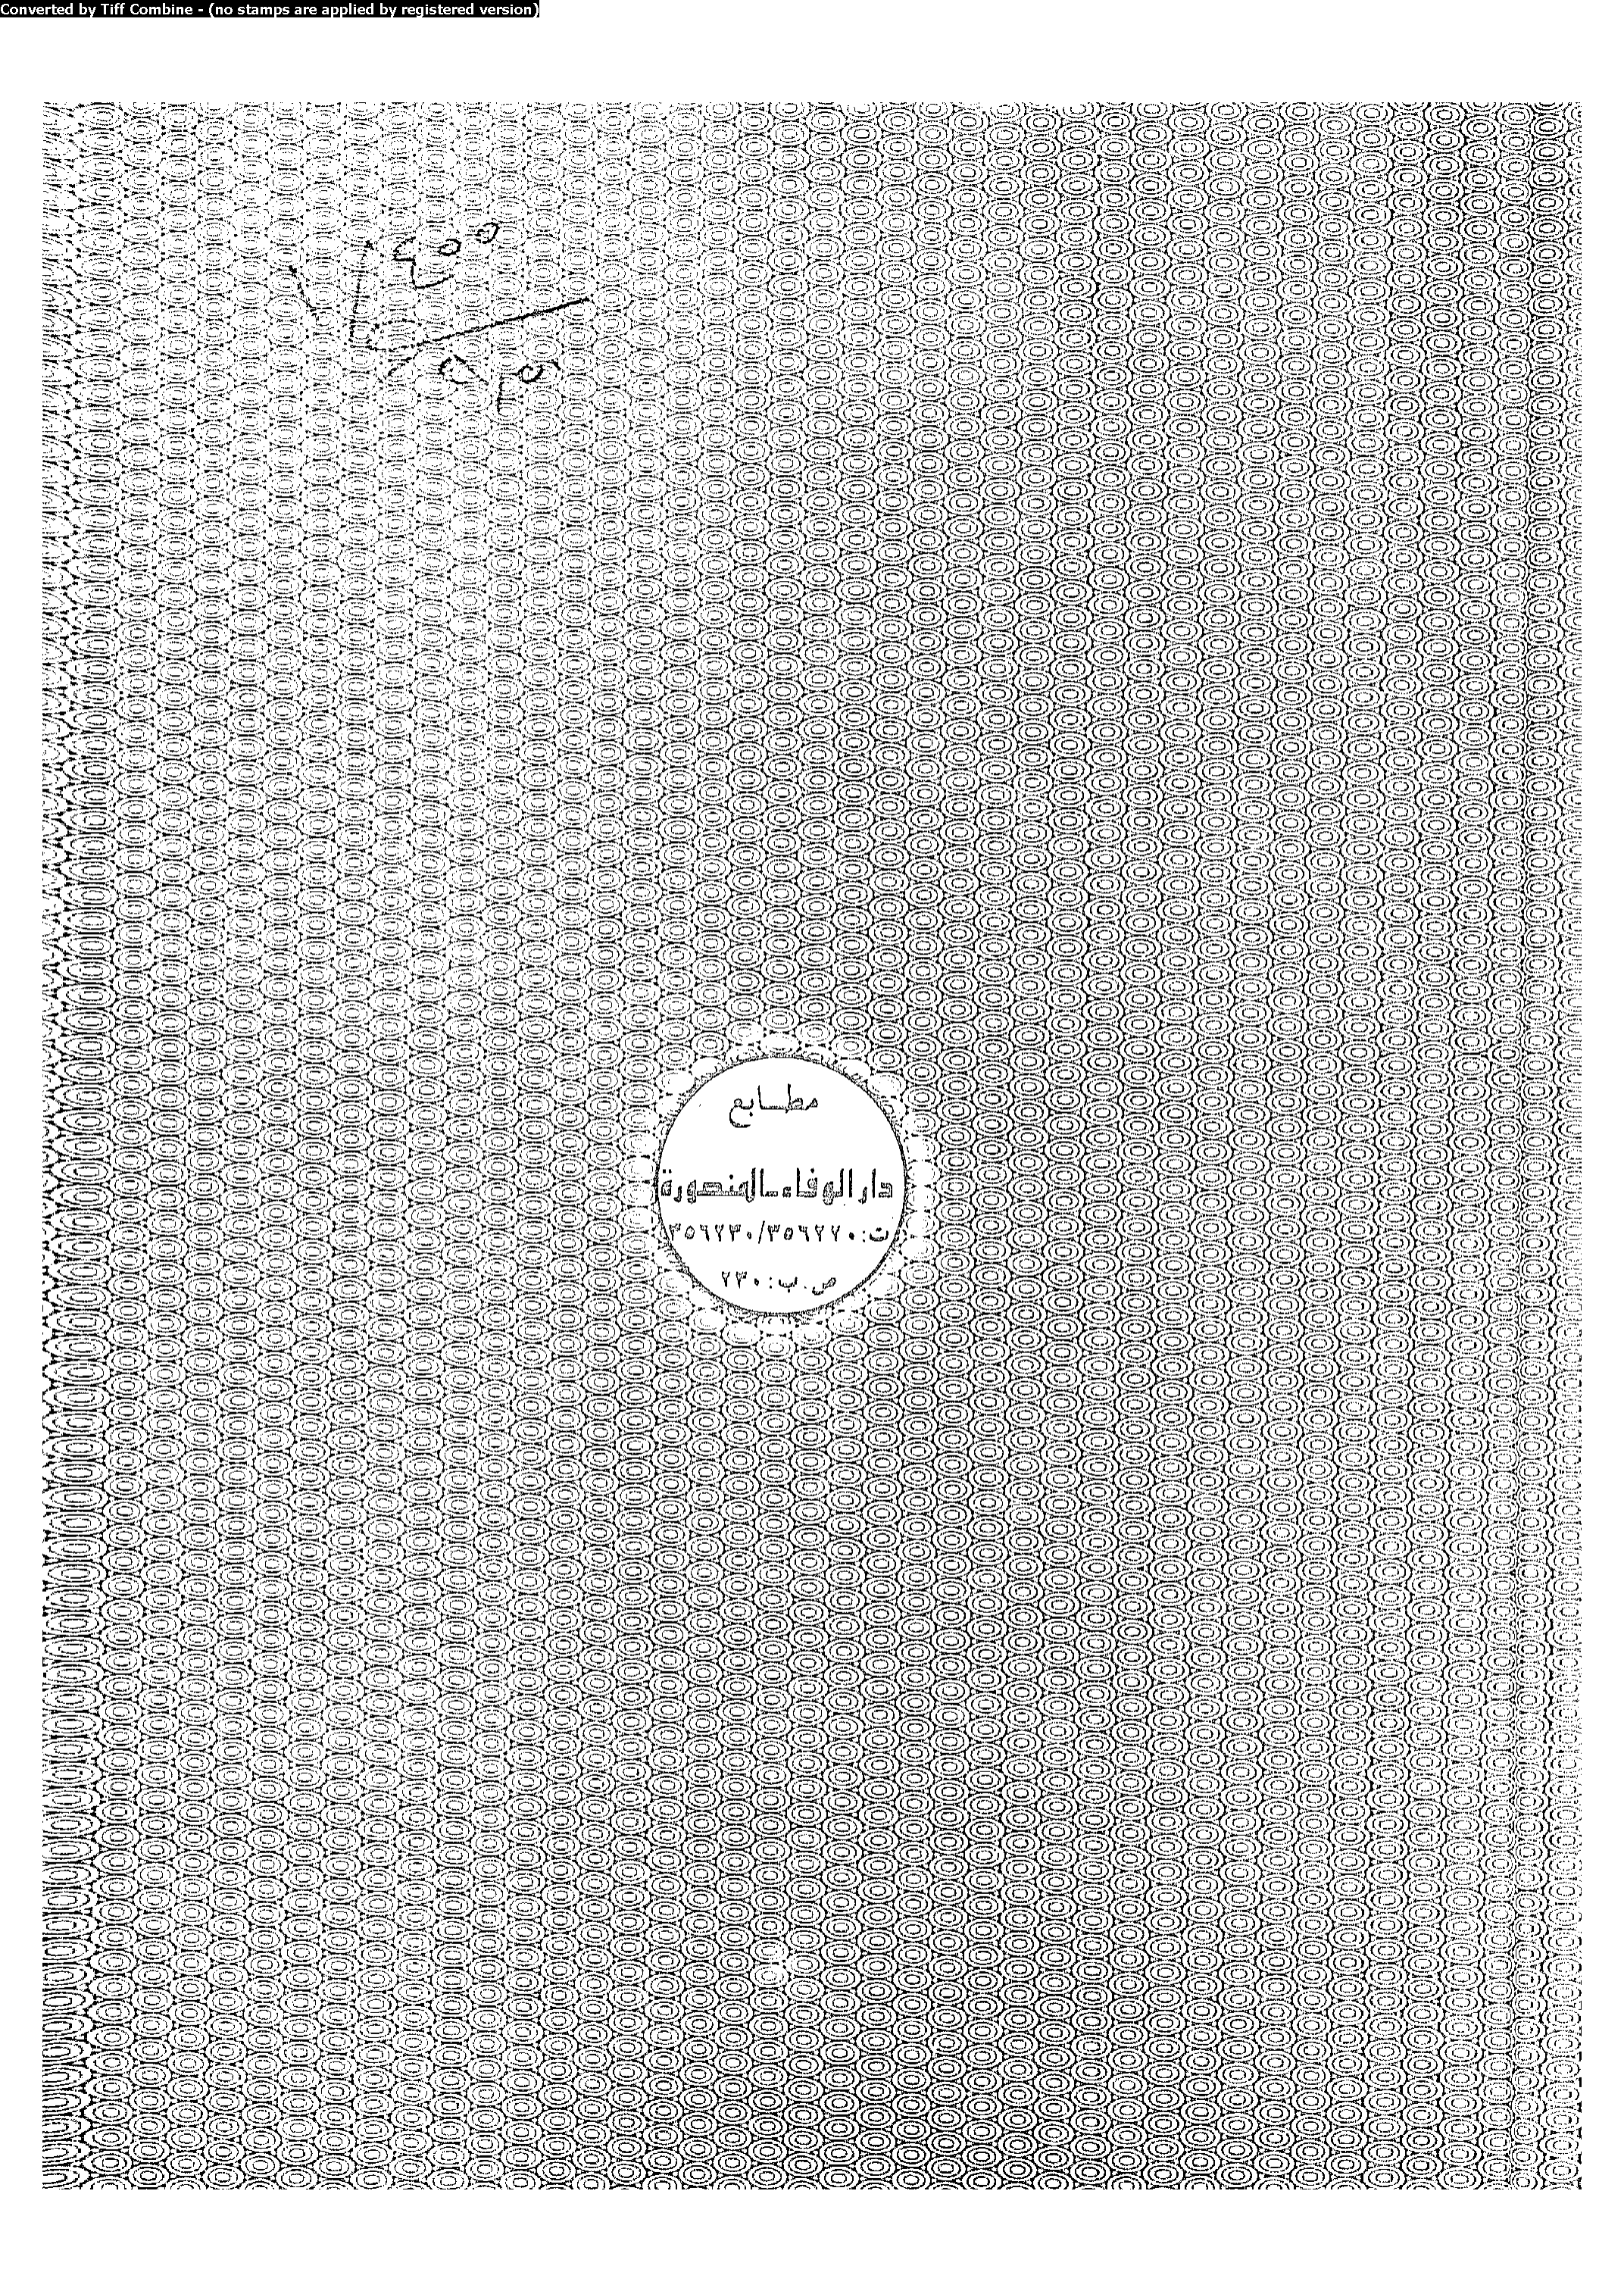 Converted by Tiff Combine - (no stamps are applied by registered version)
مطـــابع
دار الوفاء ـ المنصورة
ت: ٣٥٦٢٢٠/٣٥٦٢٣٠
ص. ب: ٢٣٠